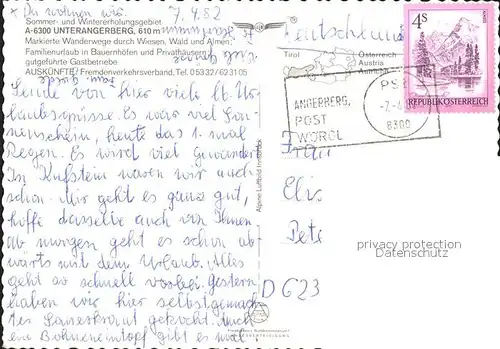 * Da wohnen wir
7.4.82
Sommer- und Wintererholungsgebiet
A-6300 UNTERANGERBERG, 610 m
Markierte Wanderwege durch Wiesen, Wald und Almen,
Familienurlaub in Bauernhöfen und Privathäusern,
gutgeführte Gastbetriebe
AUSKÜNFTE: Fremdenverkehrsverband, Tel. 05332/623105
Sende von hier viele lb. Ur-
laubsgrüsse. Es war viel Son-
nenschein, heute das 1. mal
Regen. Es wird viel gewandert
In Kufstein waren wir auch
schon. Mir geht es ganz gut,
hoffe dasselbe auch von Ihnen
ab morgen geht es schon ab-
wärts mit dem Urlaub. Alles
geht so schnell vorbei. Gestern
haben wir hier selbstgemach-
tes Sauerkraut gekocht. Auch
ein Bohneneintopf gibt es mal.
Alpine Luftbild Innsbruck
Deutschland
Tirol
Österreich
Austria
Autriche
ANGERBERG,
POST
WÖRGL
6300
4S
REPUBLIK ÖSTERREICH
Frau
Elis
Pete
D 623
privacy protection
Datenschutz